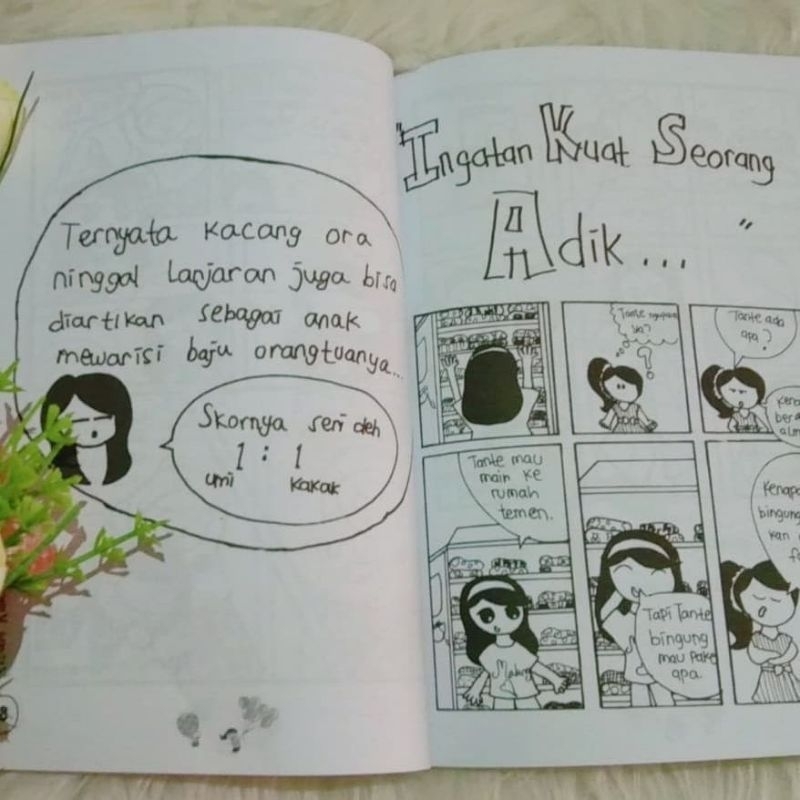 Ternyata kacang ora
ninggal lanjaran juga bisa
diartikan sebagai anak
mewarisi baju orangtuanya...
Skornya seri deh
1 : 1
umi kakak
8
"Ingatan Kuat Seorang
Adik... "
Tante ngapain
ya?
?
Tante ada
apa?
Tante mau
main ke
rumah
temen.
Tapi Tante
bingung
mau pake
apa.
bingung
kan